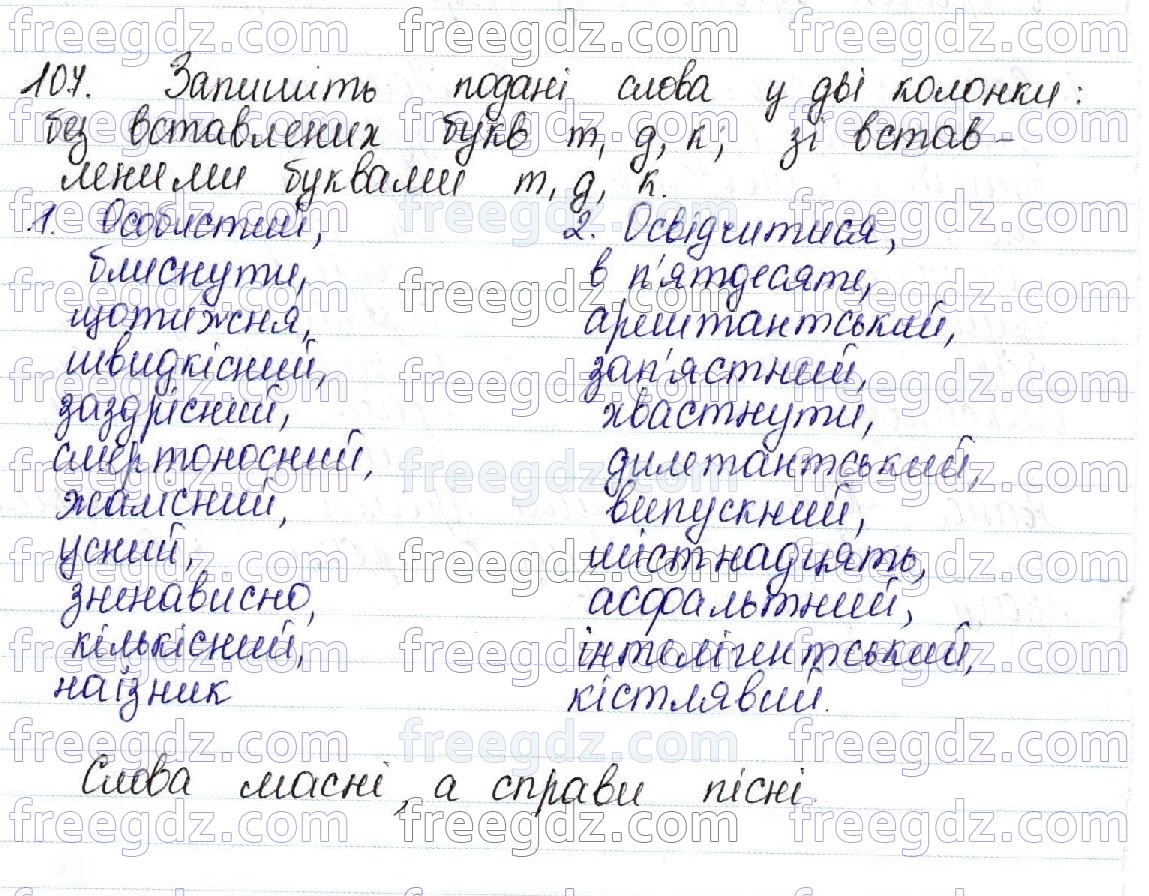 107. Запишіть подані слова у дві колонки:
без вставлених букв т, д, к; зі встав-
леними буквами т, д, к.
1. Особистий, 2. Освідчитися,
блиснути, в п'ятдесяте,
щотижня, арештантський,
швидкісний, зап'ястний,
заздрісний, хвастнути,
смертоносний, дилетантський,
жалісний, випускний,
усний, шістнадцять,
зненависно, асфальтний,
кількісний, інтелігентський,
наїзник кістлявий.
Слова масні, а справи пісні.